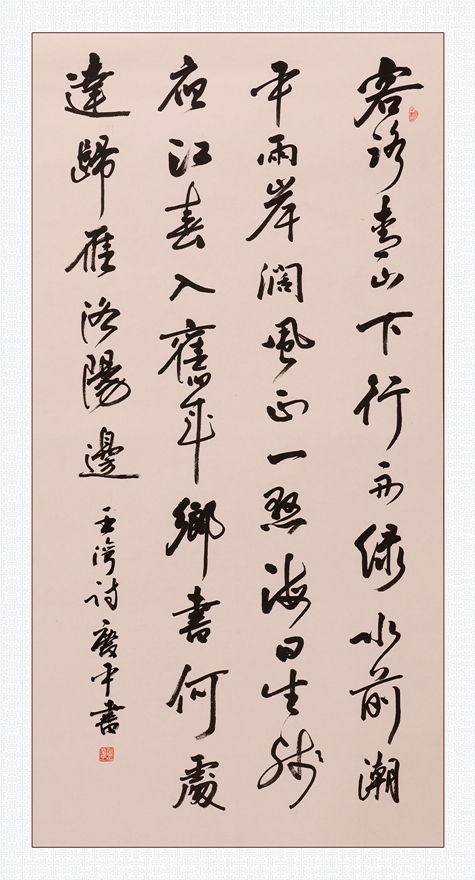 客路青山下行舟绿水前潮
平兩岸濶風正一懸海日生殘
夜江春入舊年鄉書何處
達歸雁洛陽邊
王灣詩慶中書